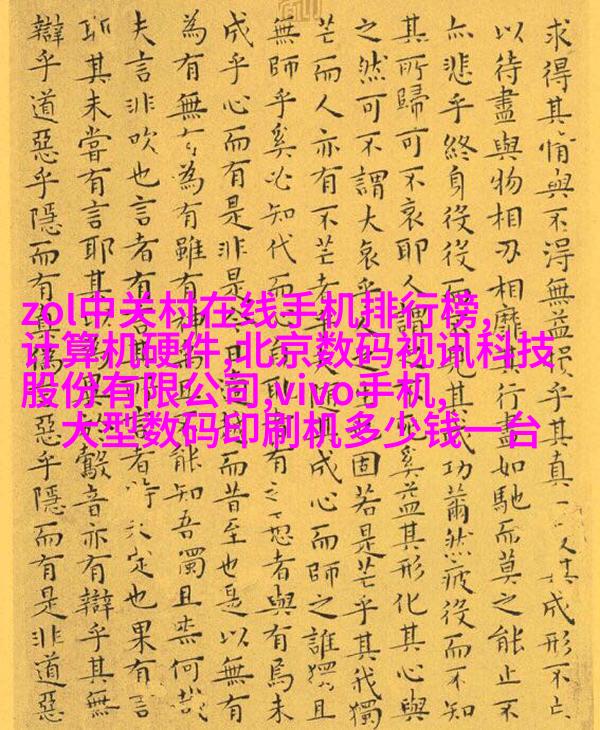 求得其情與不得無益損乎其真一其成形不亡
以待盡與物相刃相靡其行盡如馳而莫之能止不
亦悲乎終身役役而其成功薾然疲役而不知
其所歸可不哀耶人謂奚益其形化其心與
之然可不謂大哀乎人固若是芒乎其我獨
芒而人亦有不芒者乎成心而師之誰獨且
無師乎奚必知代而有之愚者與有焉未
成乎心而有是非是而昔至也是以無有
為有無有為有雖有能知吾獨且柰何哉
夫言非吹也言者有言者特未定也果有言
耶其未嘗有言耶其以鷇音亦有辯乎其無
辯乎道惡乎隱而有真偽惡乎隱而有是非道惡
zol中关村在线手机排行榜,
计算机硬件,北京数码视讯科技
股份有限公司,vivo手机,
大型数码印刷机多少钱一台